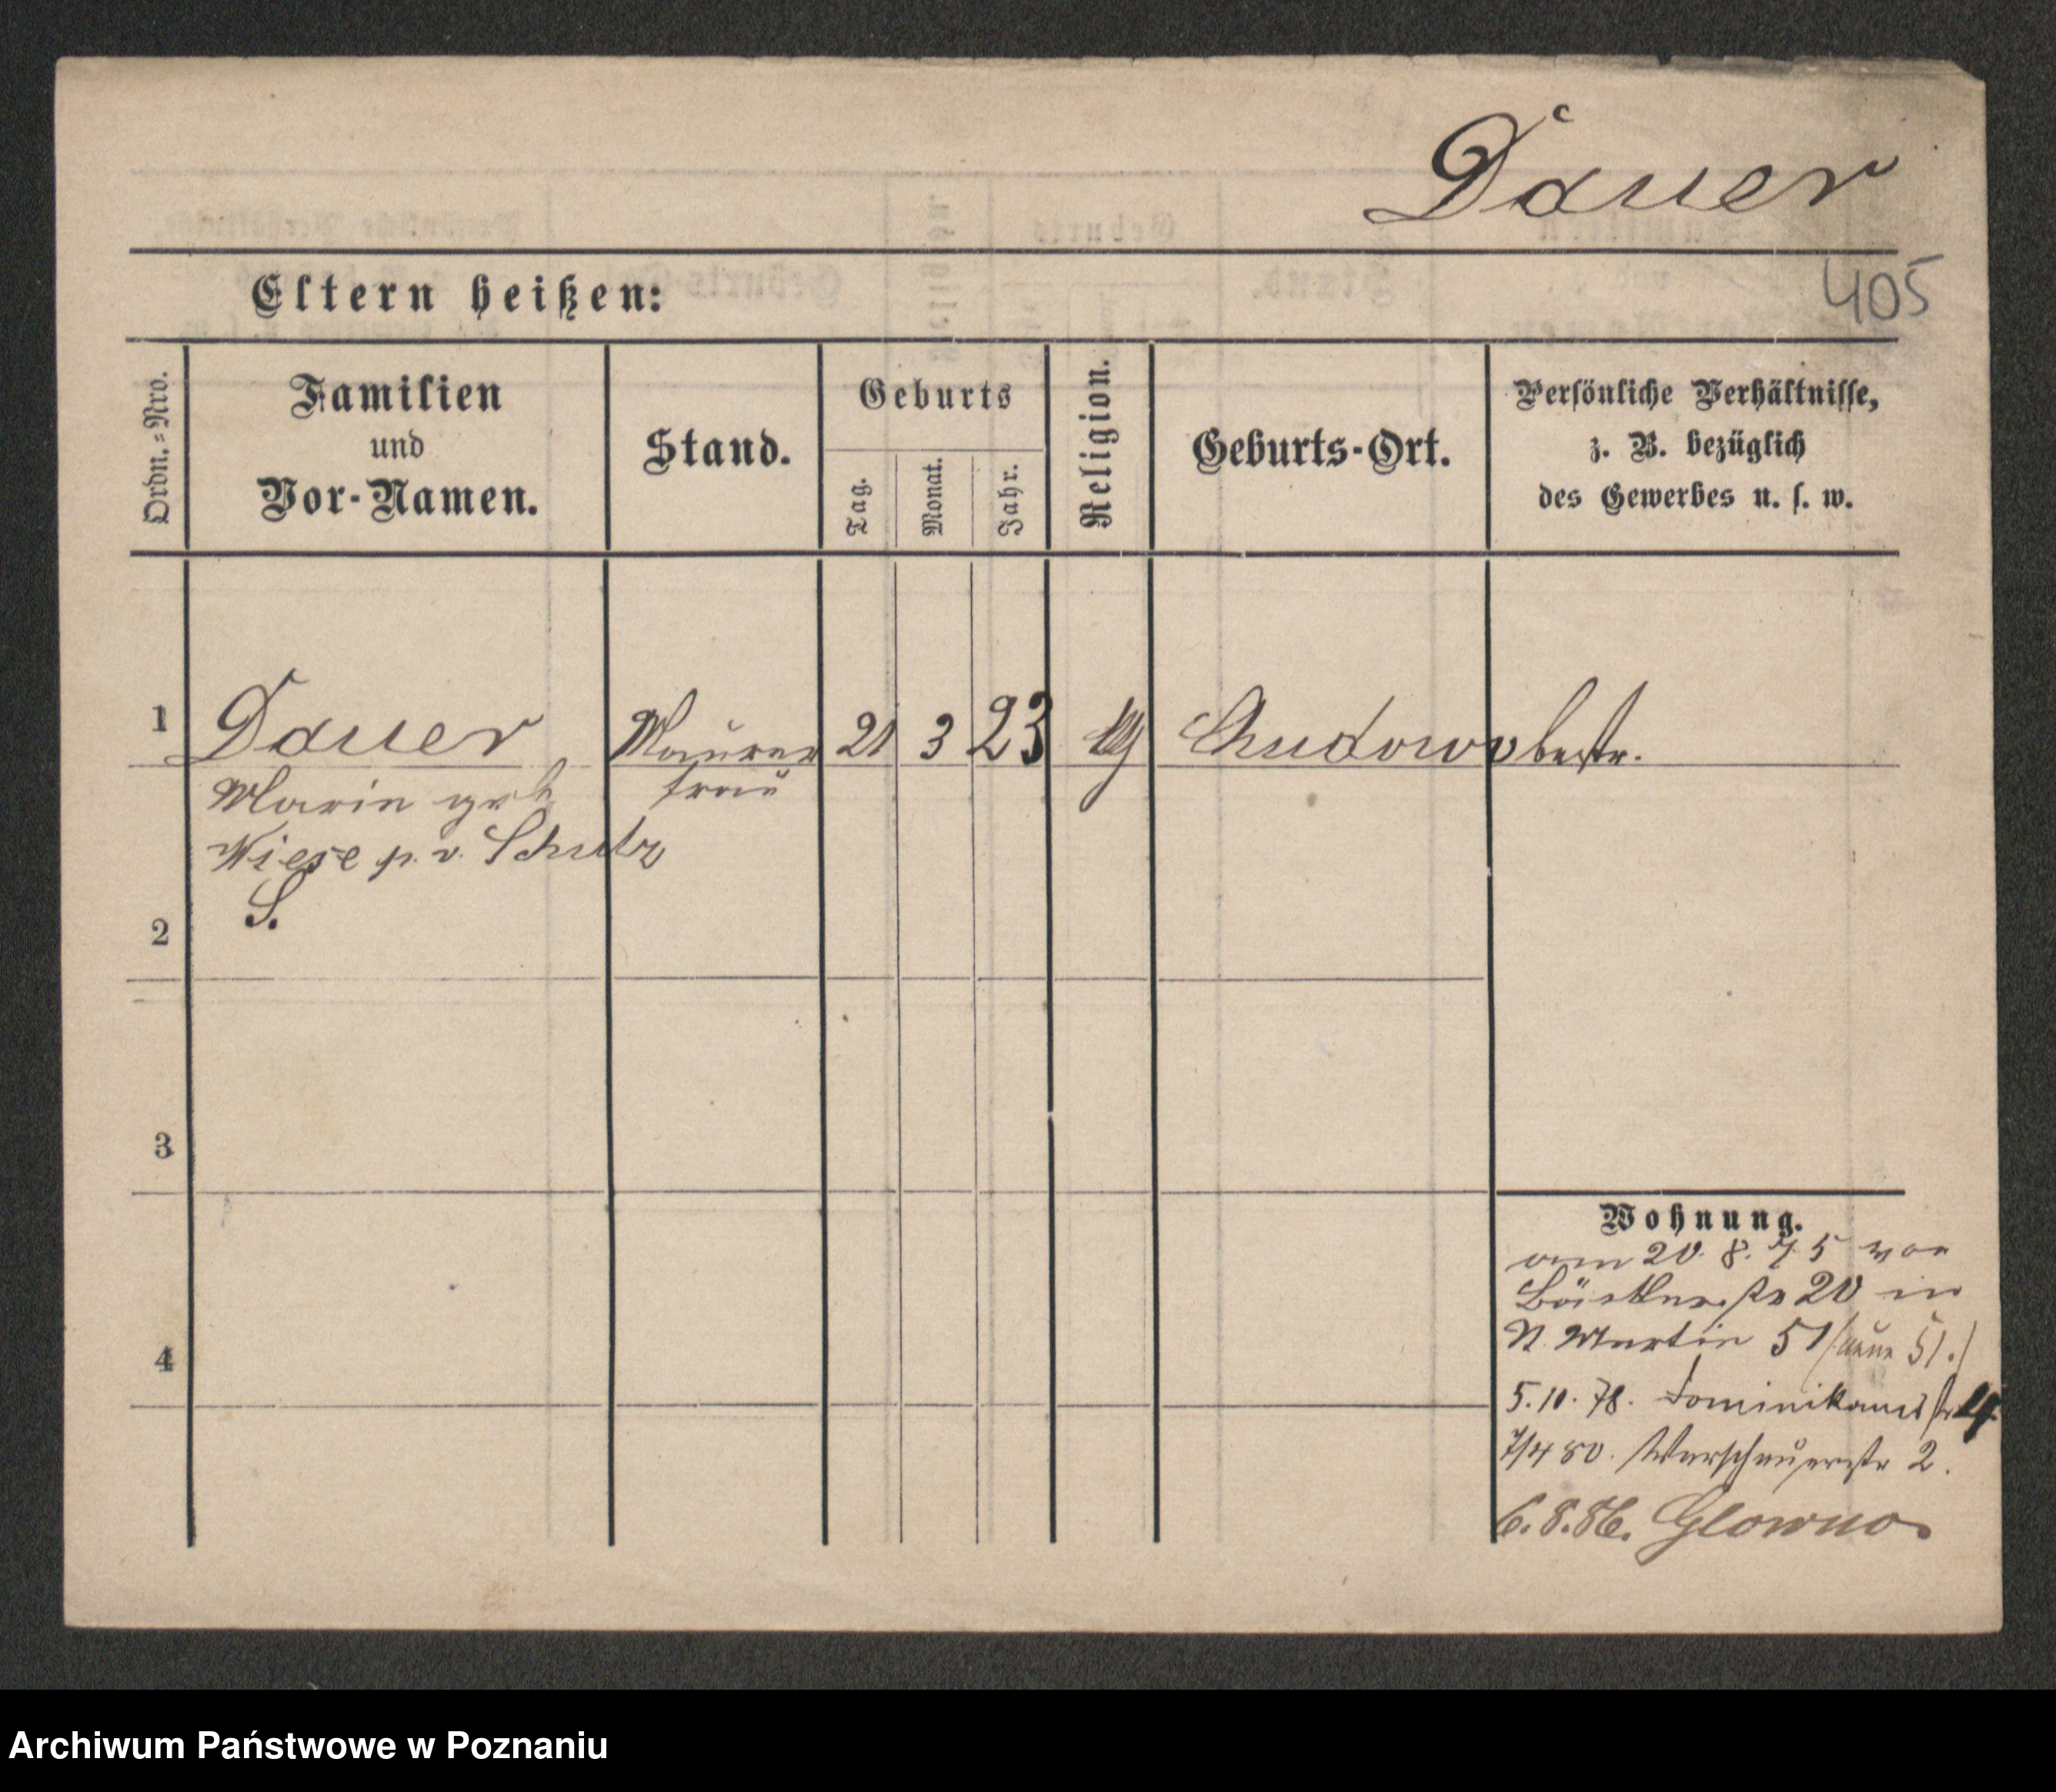 Dauer
405
Eltern heißen:
Ordn.=Nro.
Familien
und
Vor-Namen.
Stand.
Geburts
Tag.
Monat.
Jahr.
Religion.
Geburts-Ort.
Persönliche Verhältnisse,
z. B. bezüglich
des Gewerbes u. s. w.
1
Dauer
Maurer
21
3
23
Chudowo
bestr.
Marie geb
frau
Wiese p. v. Schulz
S.
2
3
4
Wohnung.
vom 20. 8. 75 von
20 in
St. Martin 51 (neue 51.)
5.10.78. Dominikanerstr 4.
7/4 80. Warschauerstr 2.
6.8.86. Glowno
Archiwum Państwowe w Poznaniu